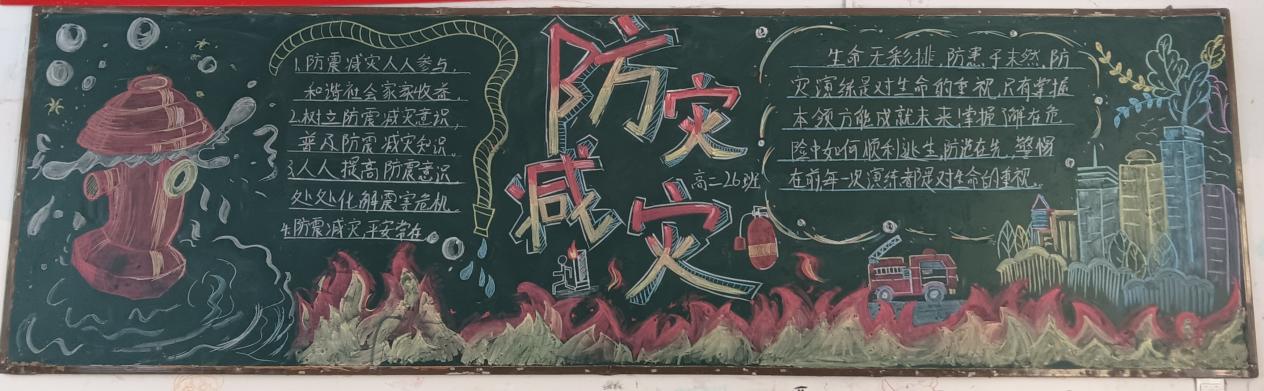 1.防震减灾人人参与,
和谐社会家家收益.
2.树立防震减灾意识,
普及防震减灾知识。
3.人人提高防震意识
处处化解震害危机.
4.防震减灾,平安常在.
防灾
减灾
高二26班
生命无彩排,防患于未然,防
灾演练是对生命的重视,只有掌握
本领方能成就未来,掌握了解在危
险中如何顺利逃生,防范在先,警惕
在前,每一次演练都是对生命的重视.